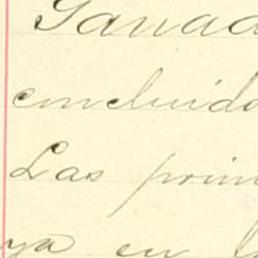 Ganad
concluido
Las prin
ya en l